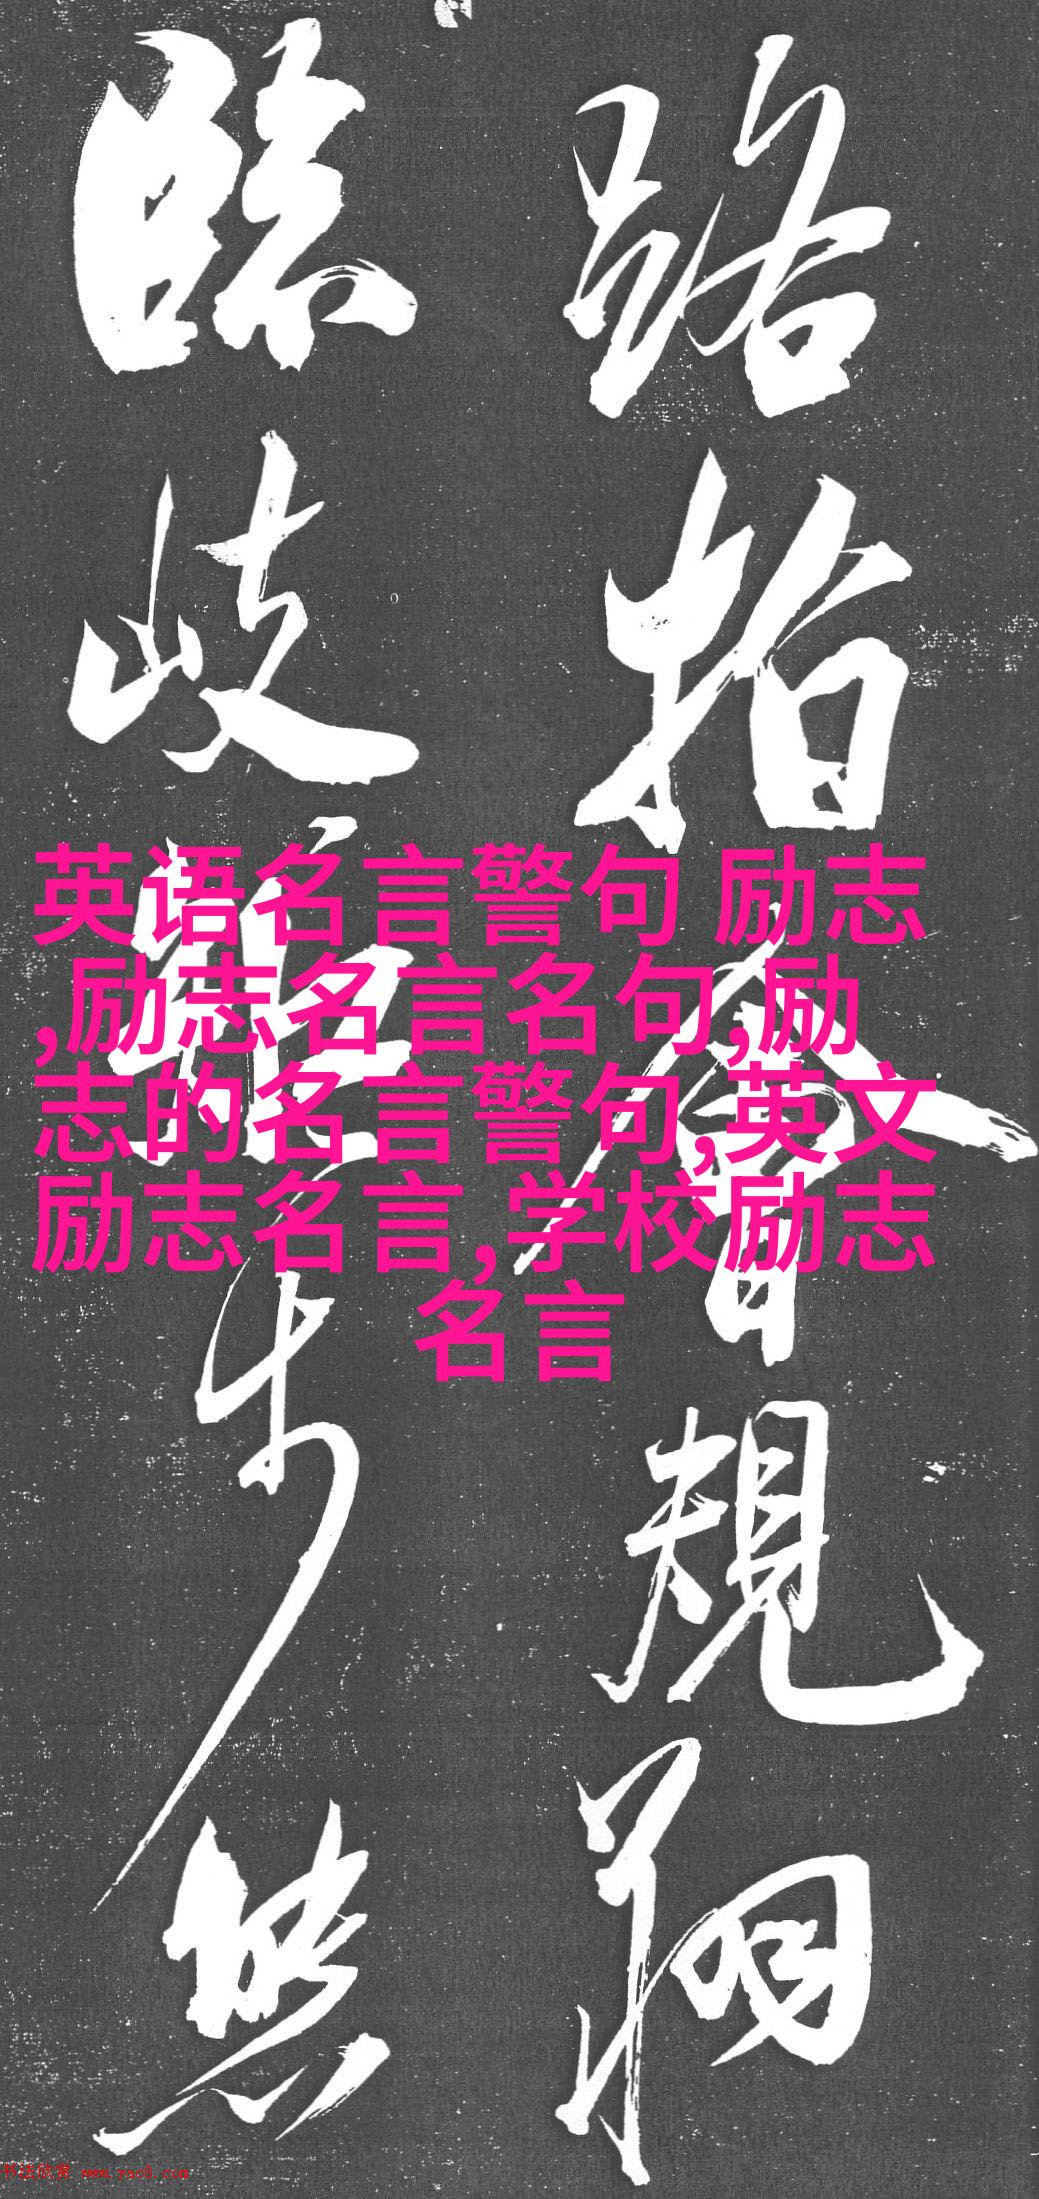 路指會規翔
臨岐矩步
英语名言警句 励志
,励志名言名句,励
志的名言警句,英文
励志名言,学校励志
名言
书法欣赏 www.yac8.com